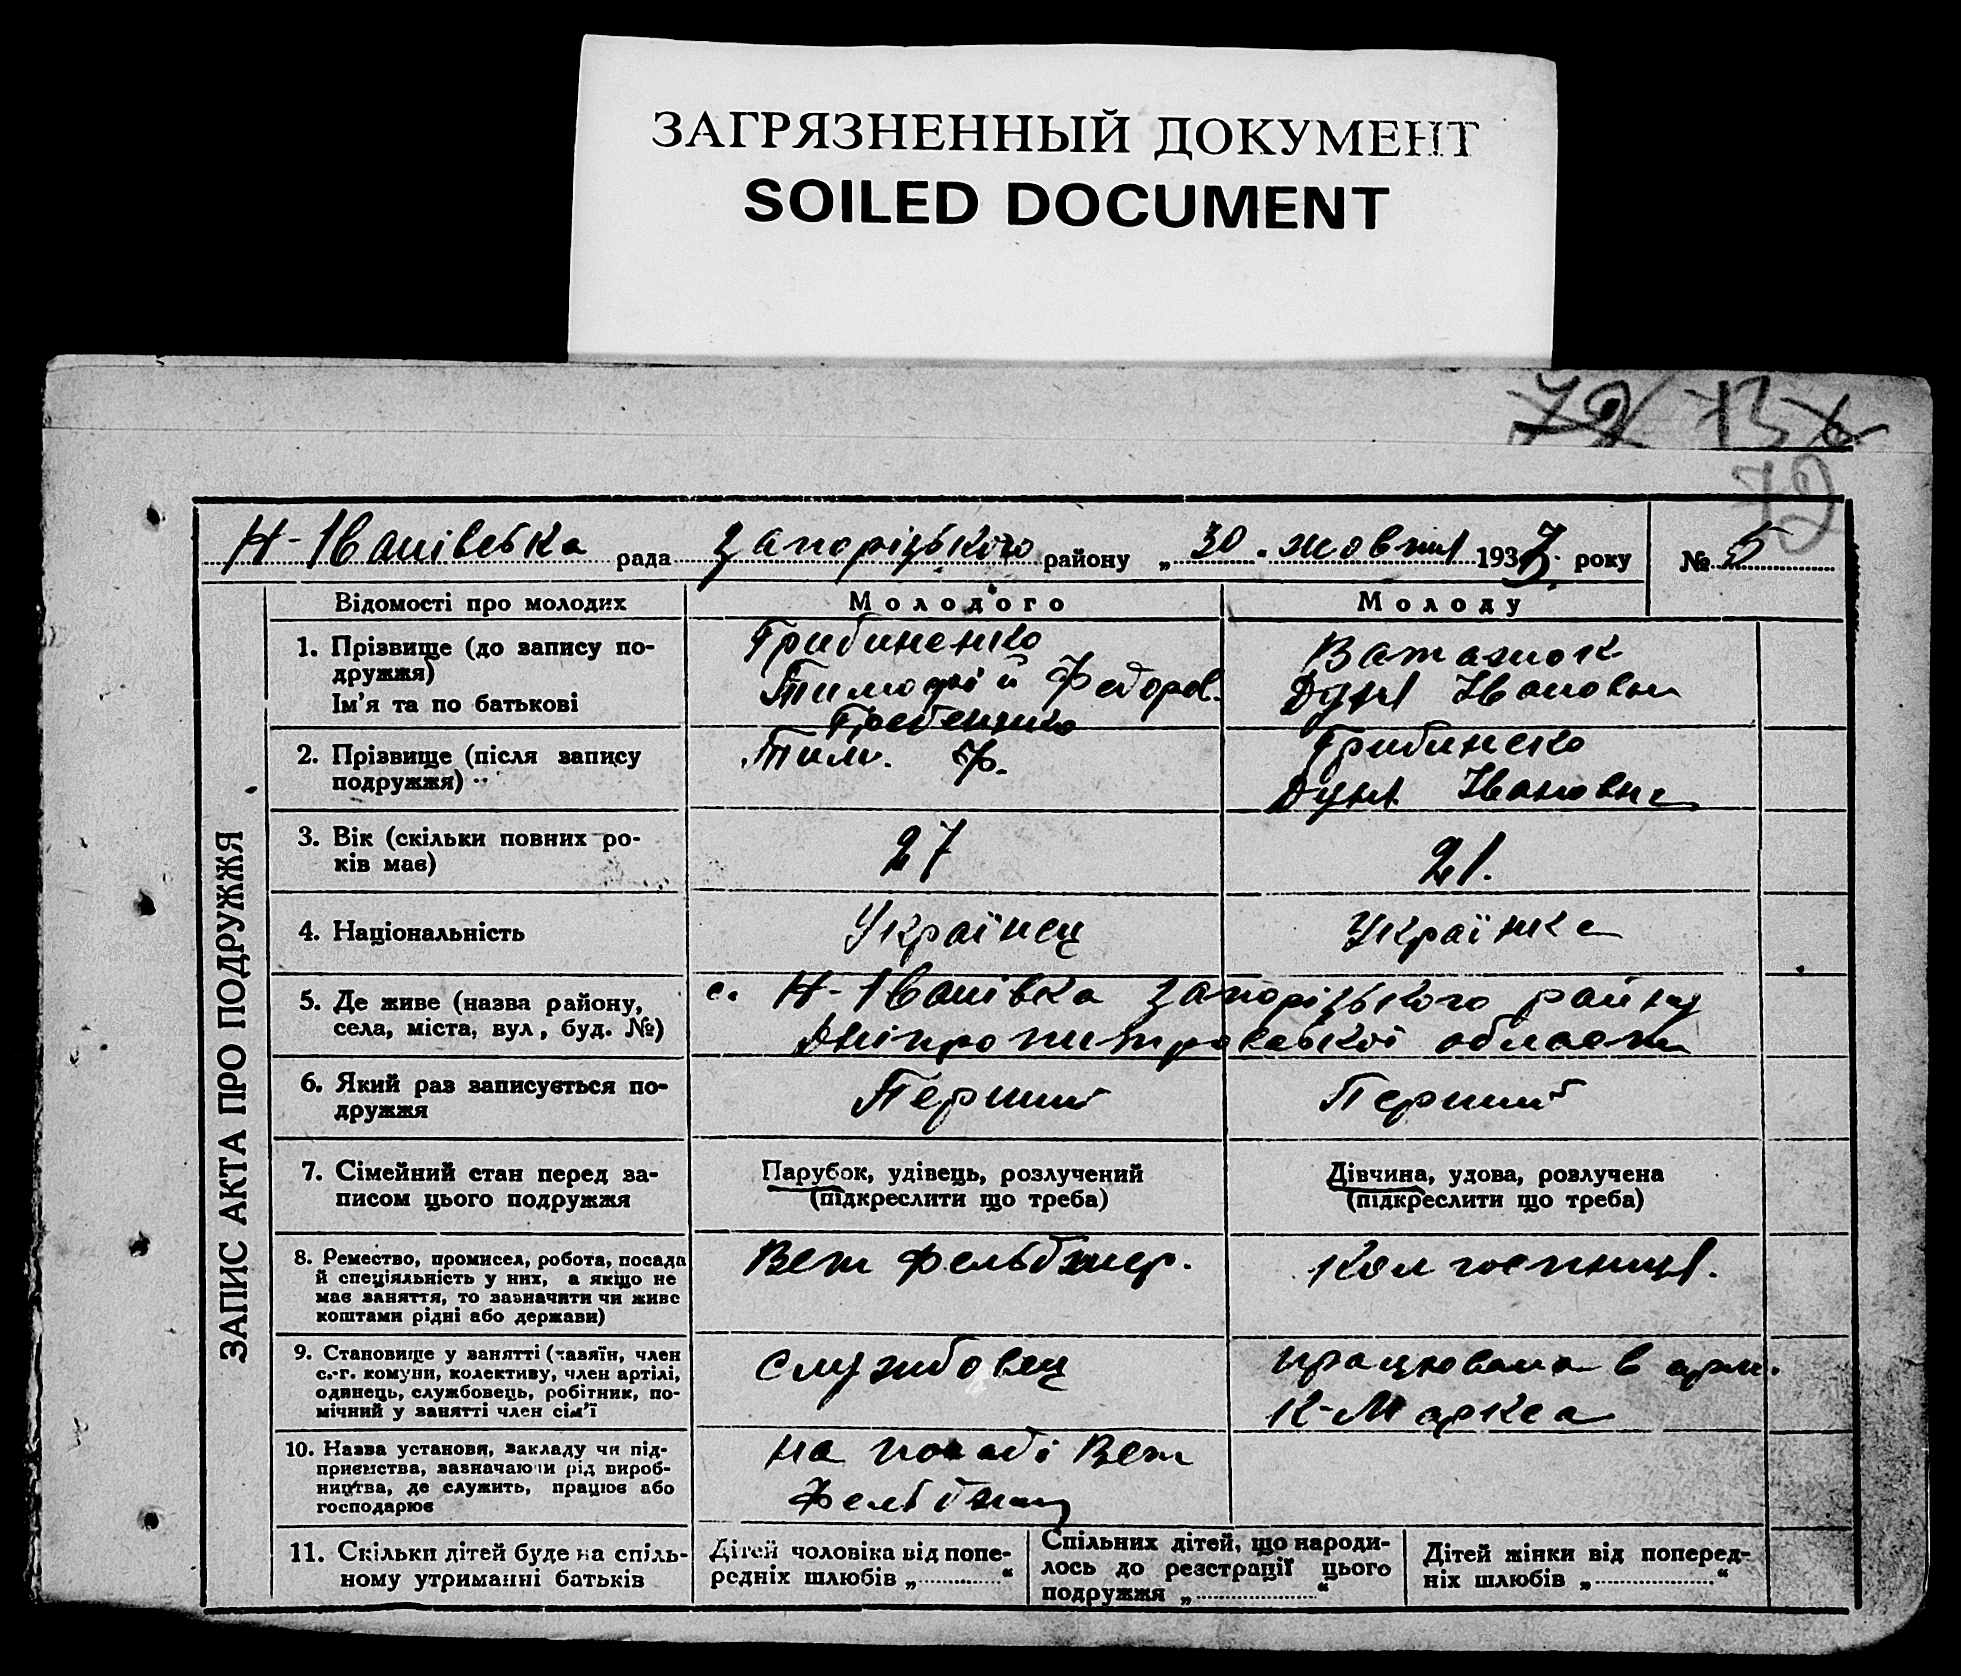 ЗАГРЯЗНЕННЫЙ ДОКУМЕНТ
SOILED DOCUMENT
72
72
Н-Іванівська рада Запорізького району „30. жовтня 1937. року № 5
ЗАПИС АКТА ПРО ПОДРУЖЖЯ
Відомості про молодих Молодого Молоду
1. Прізвище (до запису по-
дружжя)
Ім'я та по батькові
Грибиненко
Тимофій Федоров.
Ваташок
Дуня Івановна
2. Прізвище (після запису
подружжя)
Гребенико
Тим. Ф.
Грибиненко
Дуня Івановна
3. Вік (скільки повних ро-
ків має)
27
21.
4. Національність
Українец
Українка
5. Де живе (назва району,
села, міста, вул, буд. №)
с. Н-Іванівка Запорізького району
Дніпропитровської области
6. Який раз записується по-
дружжя
Перший
Перший
7. Сімейний стан перед за-
писом цього подружжя
Парубок, удівець, розлучений
(підкреслити що треба)
Дівчина, удова, розлучена
(підкреслити що треба)
8. Ремество, промисел, робота, посада
й спеціяльність у них, а якщо не
має заняття, то зазначити чи живе
коштами рідні або держави)
Вет фельдшер.
Колгоспниця.
9. Становище у занятті (хазяїн, член
с.-г. комуни, колективу, член артілі,
одинець, службовець, робітник, по-
мічний у занятті член сім'ї
службовец
працювала в арт.
К-Маркса
10. Назва установи, закладу чи під-
приємства, зазначаючи рід вироб-
ництва, де служить, працює або
господарює
на посаді Вет
11. Скільки дітей буде на спіль-
ному утриманні батьків
Дітей чоловіка від попе-
редніх шлюбів „ “
Спільних дітей, що народи-
лось до реєстрації цього
подружжя „ “
Дітей жінки від поперед-
ніх шлюбів „ “